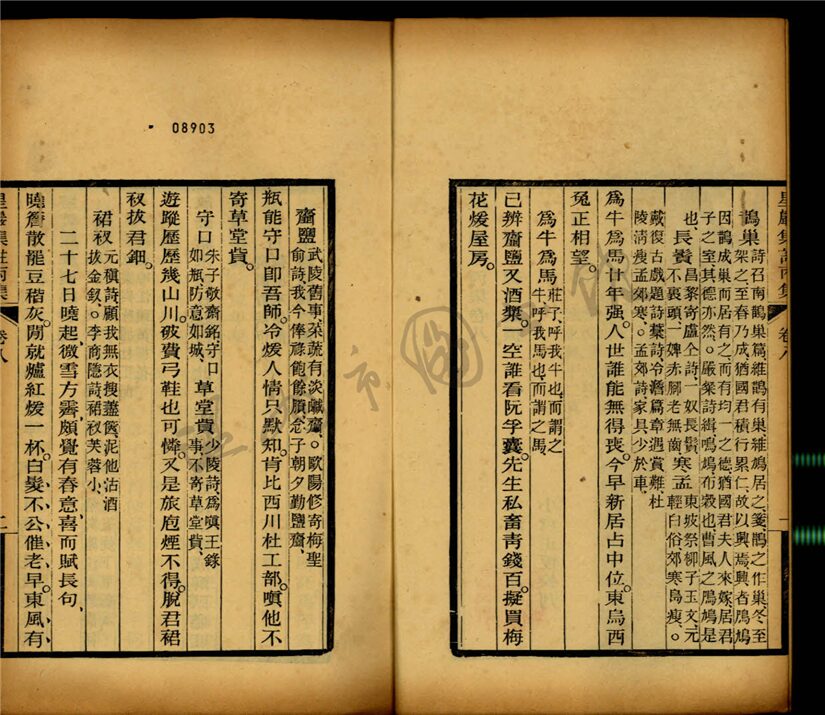 鵲巢 詩召南鵲巢篇維鵲有巢維鳩居之箋鵲之作巢冬至
架之至春乃成猶國君積行累仁故以興焉興者鳲鳩
因鵲成巢而居有之而有均一之德猶國君夫人來嫁居君
子之室其德亦然。嚴粲詩緝鳲鳩布穀也曹風之鳲鳩是
也、長鬚 昌黎寄盧仝詩一奴長鬚
不裹頭一婢赤腳老無齒 寒孟 東坡祭柳子玉文元
輕白俗郊寒島瘦。
戴復古戲題詩藳詩冷澹篇章遇賞難杜
陵淸瘦孟郊寒。孟郊詩家具少於車、
爲牛爲馬廿年强。人世誰能無得喪。今早新居占中位。東烏西
兔正相望。
爲牛爲馬 莊子呼我牛也而謂之
牛呼我馬也而謂之馬、
已辨齋鹽又酒槳。一空誰看阮孚囊。先生私畜靑錢百。擬買梅
花煖屋房。
08903
齋鹽 武陵舊事菜蔬有淡鹹齏。歐陽修寄梅聖
俞詩我今俸祿飽餘賸念子朝夕勤鹽齏、
瓶能守口卽吾師。冷煖人情只默知。肯比西川杜工部。嗔他不
寄草堂貲。
守口 朱子敬齋銘守口
如瓶防意如城、 草堂貲 少陵詩爲嗔王錄
事不寄草堂貲、
遊蹤歷歷幾山川。破費弓鞋也可憐。又是旅庖煙不得。脫君裙
衩拔君鈿。
裙衩 元稹詩顧我無衣搜藎篋泥他沽酒
拔金釵。。李商隱詩裙衩芙蓉小、
二十七日曉起、微雪方霽、頗覺有春意、喜而賦長句、
曉簷散罷豆稭灰。閒就爐紅煖一杯。白髮不公催老早。東風有
星巖集註丙集 卷八